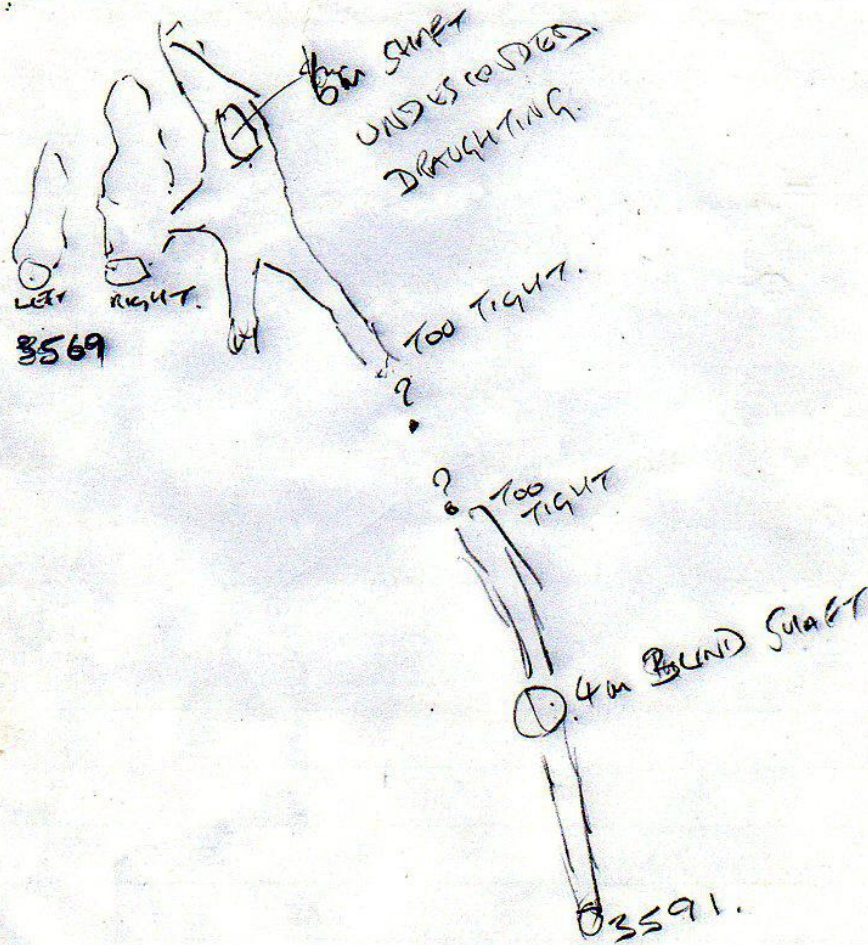 6m SHAFT
UNDESCENDED.
DRAUGHTING.
LEFT
RIGHT.
3569
TOO TIGHT.
?
?
TOO
TIGHT
4m BLIND SHAFT
3591.